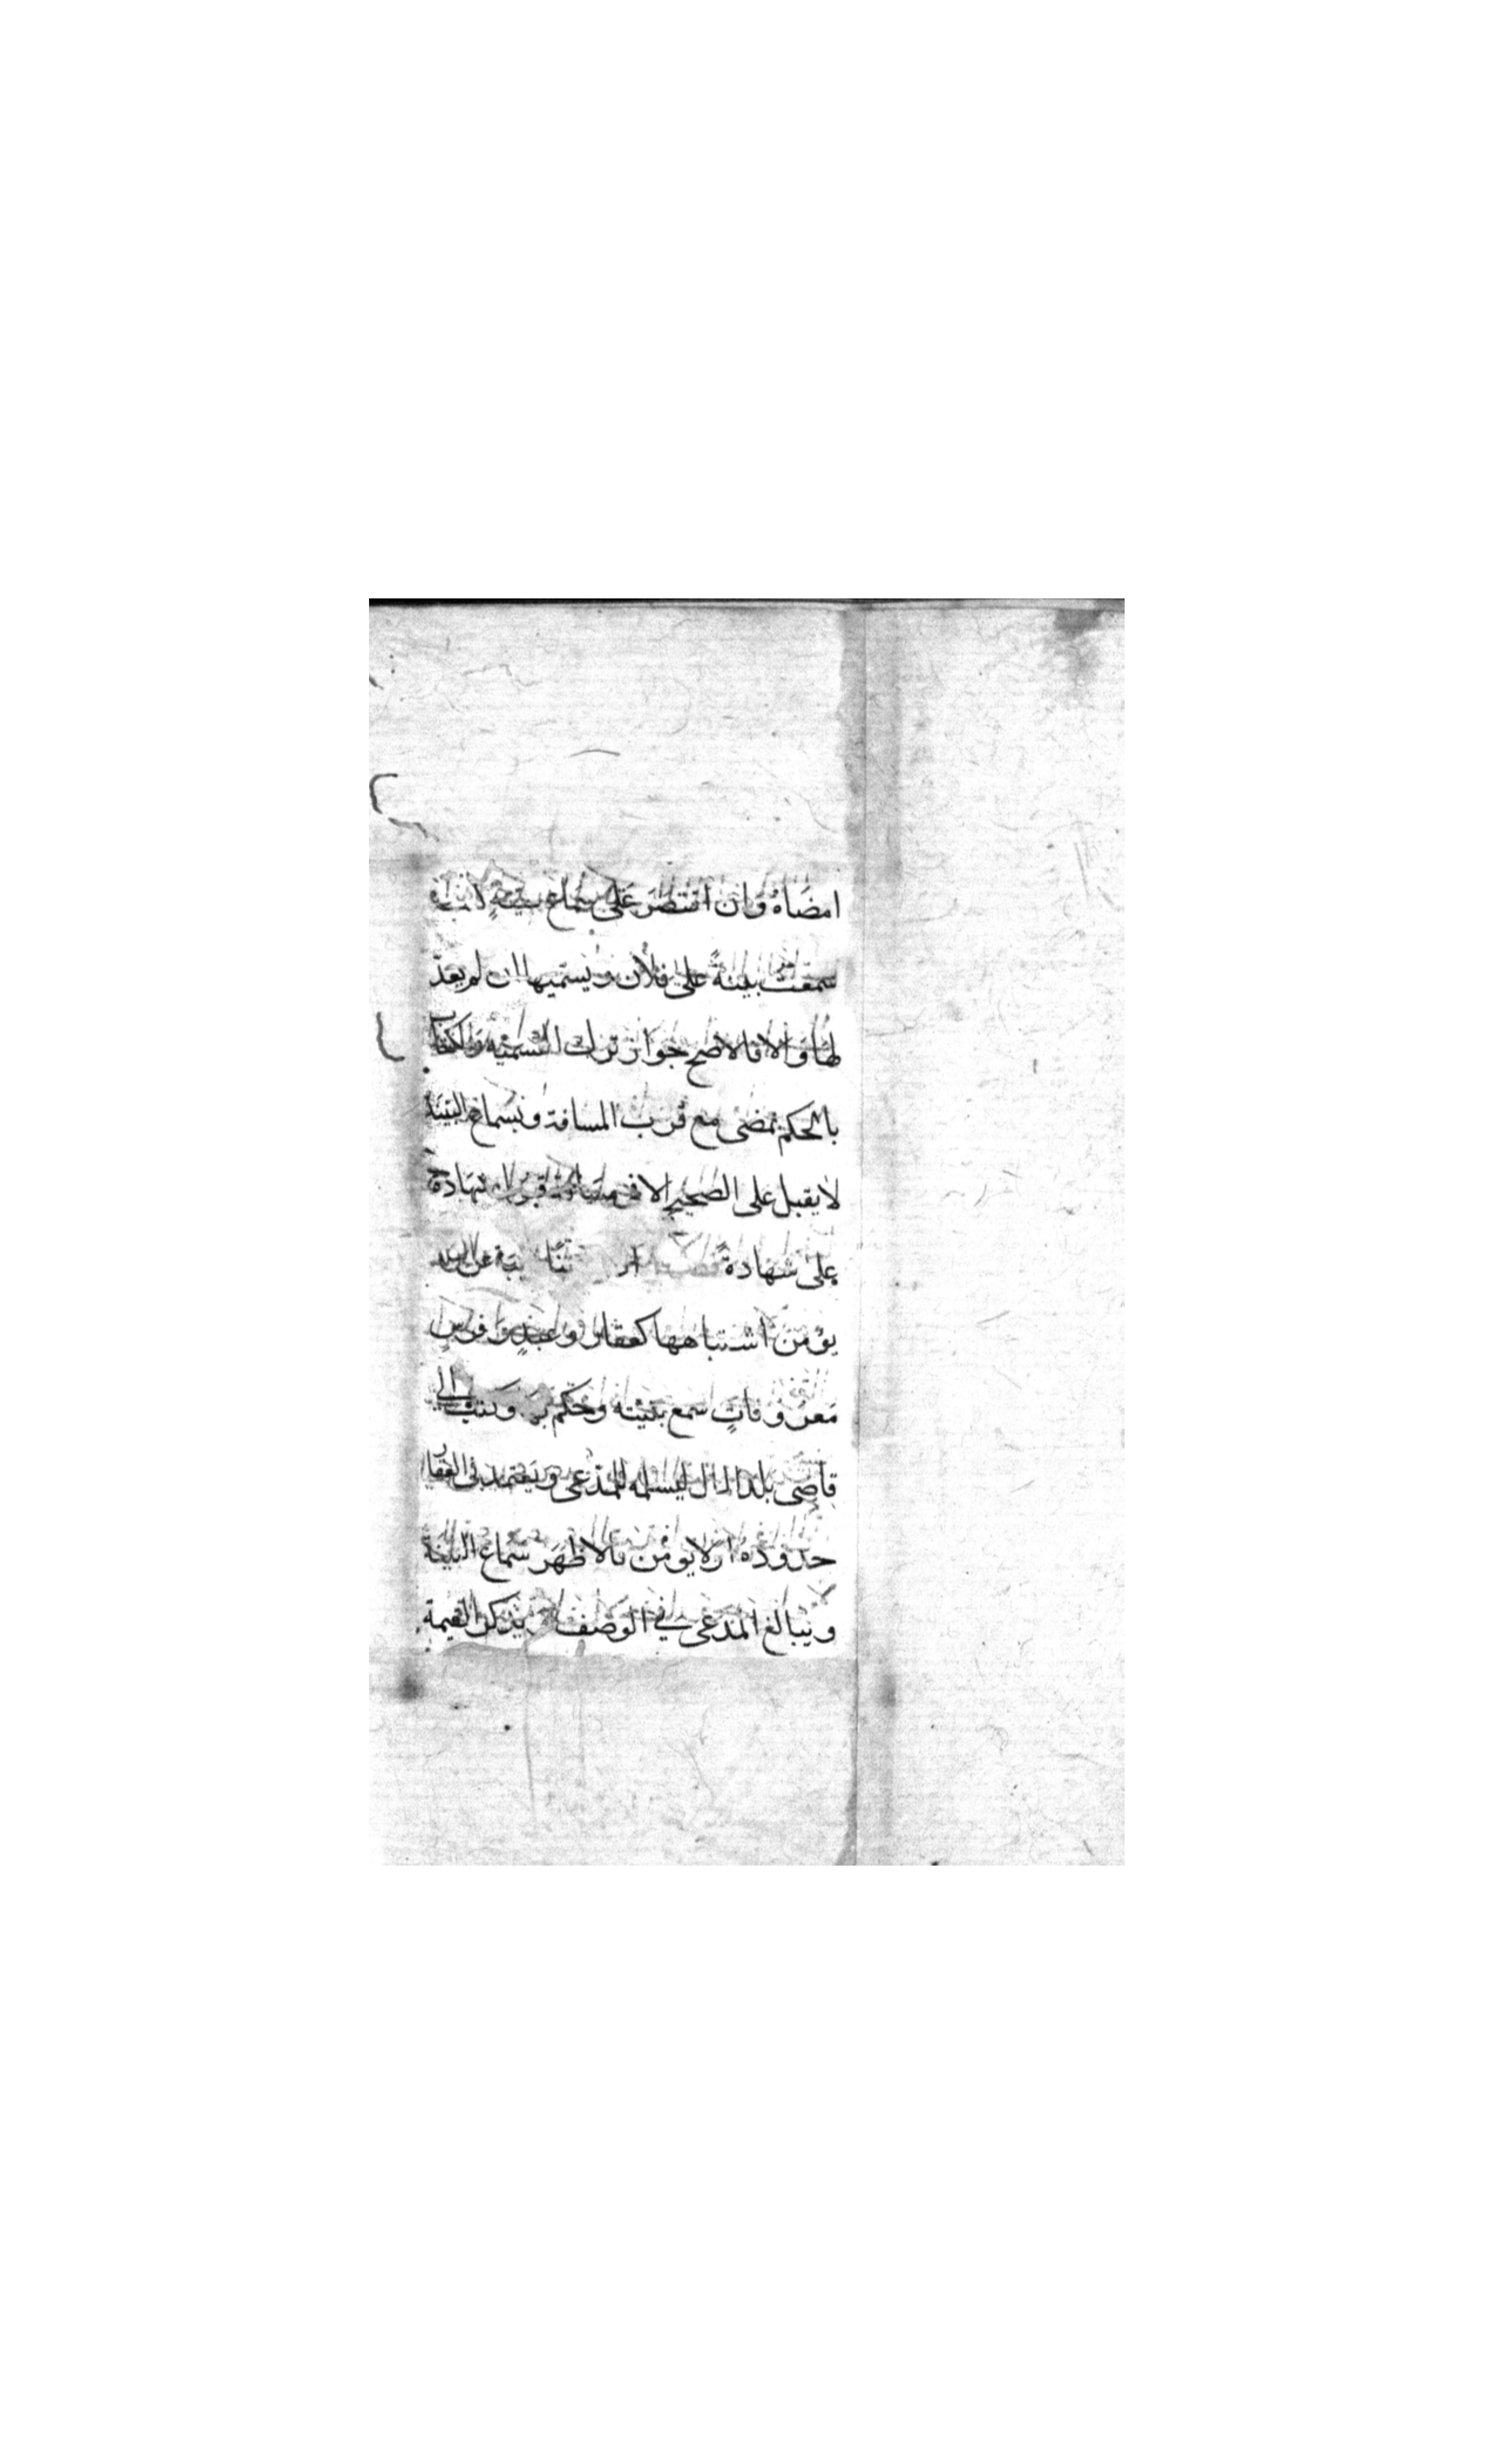 امضاه وان اقتصر على سماع بينة كتب
سمعت بينة على فلان ويسميها ان لم يعدّ
لها والا فالاصح جواز ترك التسمية والكتاب
بالحكم يمضى مع قرب المسافة وبسماع البينة
لا يقبل على الصحيح الا فى مسافة قبول شهادة
على شهادة عن البلد
يؤمن اشتباهها كعقار وعبد وفرس
معروفات سمع بينته وحكم بها وكتب الى
قاضى بلد المال ليسلمه للمدعى ويعتمد فى العقار
حدوده او لا يؤمن فالاظهر سماع البينة
ويبالغ المدعى في الوصف يذكر القيمة